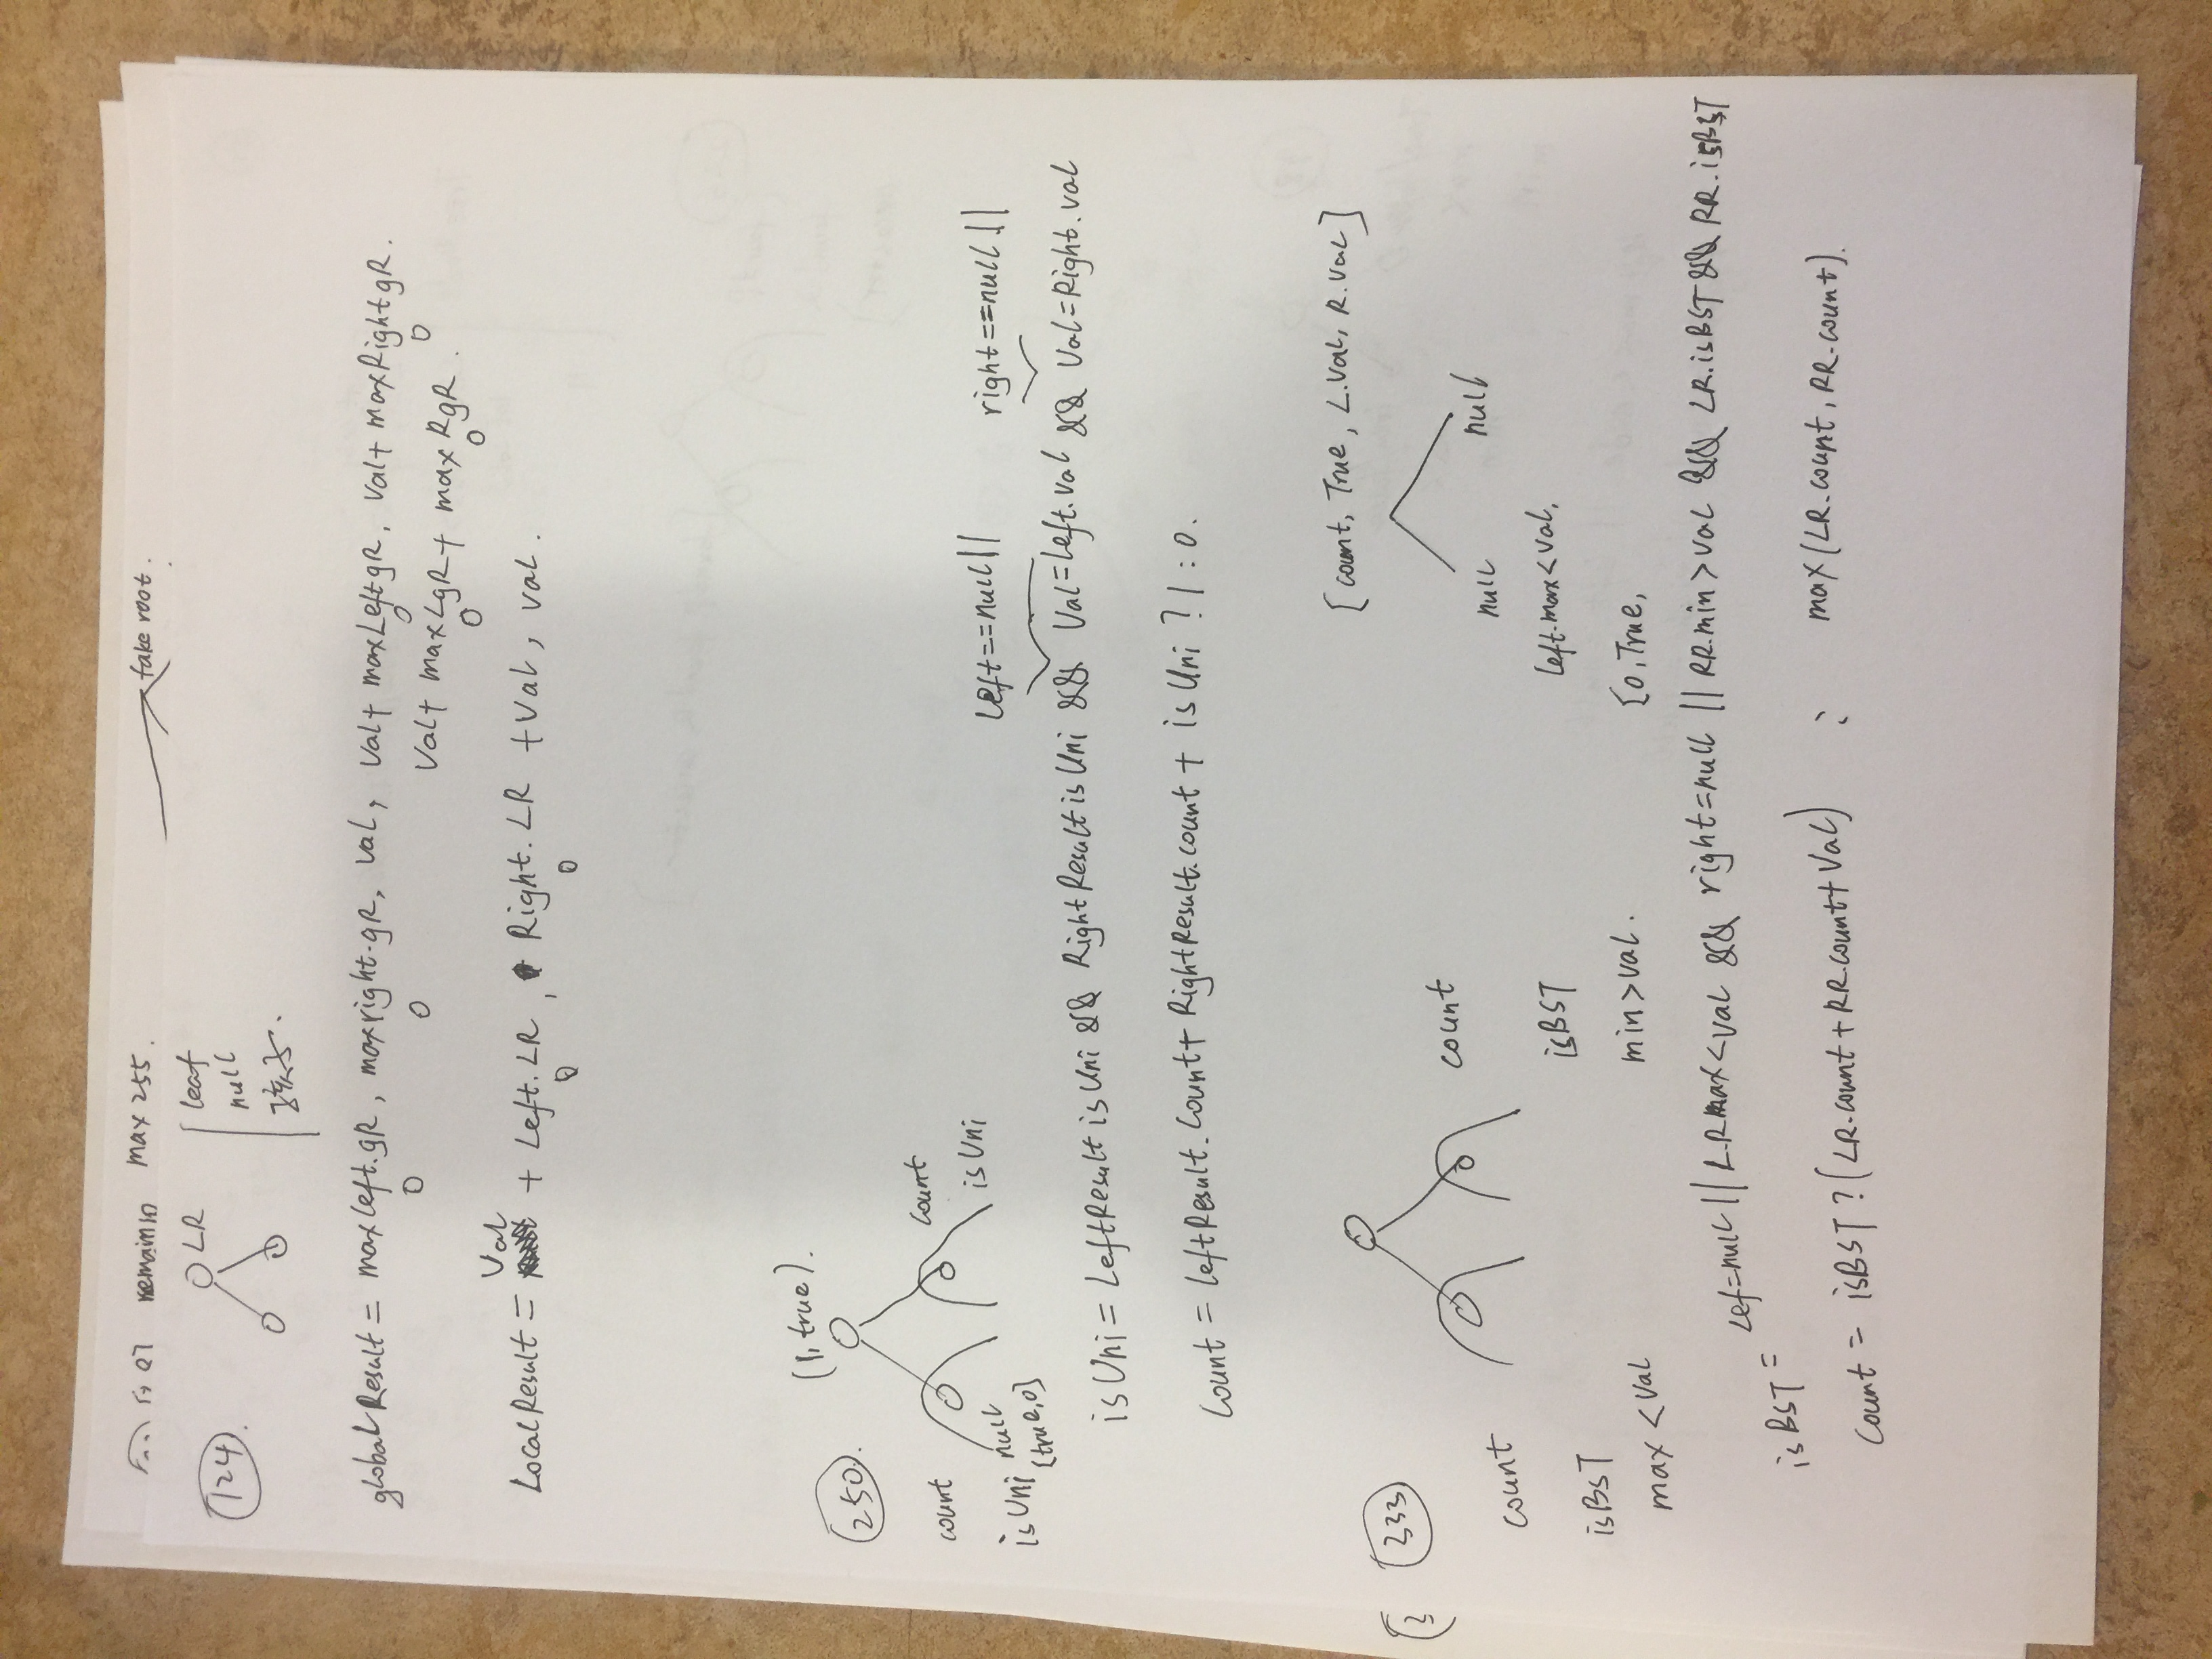 max 255.
fake root.
124.
LR
leaf
null
孩子.
globalResult = maxleft.gR, maxright.gR, val, Val+ maxLeftgR, Val+ maxRightgR.
0 0 0 0
Val+ maxLgR+ max RgR.
0 0
Val
LocalResult = + Left.LR, Right.LR +Val, val.
0 0
(1, true).
250.
count
count
isUni
isUni
null
[true,0]
left==null||
right==null||
isUni = LeftResult isUni && RightResult isUni && Val=Left.val && Val=Right.val
Count = leftResult.Count+ RightResult.count + isUni ? 1 : 0.
[count, True, L.Val, R.Val]
(3
333
count
null
null
count
isBST
left.max<val,
isBST
min>val.
{0,True,
max <Val
Lef=null || L.Rmax<val && right=null || RR.min>val && LR.isBST && RR.isBST
isBST =
Count = isBST ? (LR.count+RR.count+Val) : max(LR.count, RR.count).